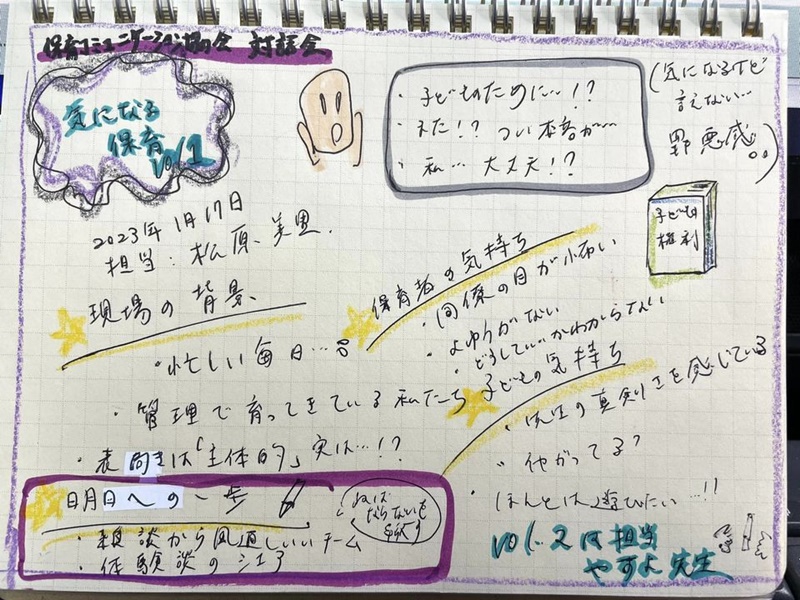 保育コミュニケーション協会 対話会
気になる
保育
vol.1
・子どものために…!?
・えだ!? つい本音が…
・私… 大丈夫!?
(気になるけど
言えない…
罪悪感)
子どもの
権利
2023年1月17日
担当：松原 美里.
現場の背景
・忙しい毎日…
・管理で育ってきている私たち
・表向きは「主体的」実は…!?
保育者の気持ち
・同僚の目が怖い
・よゆうがない
・どうしていいかわからない
子どもの気持ち
・先生の真剣さを感じている
・
・ほんとは遊びたい…!!
明日への一歩
・相談から風通しいいチーム
・体験談のシェア
ねば
ならないを
手放す
vol.2は担当
やすよ先生